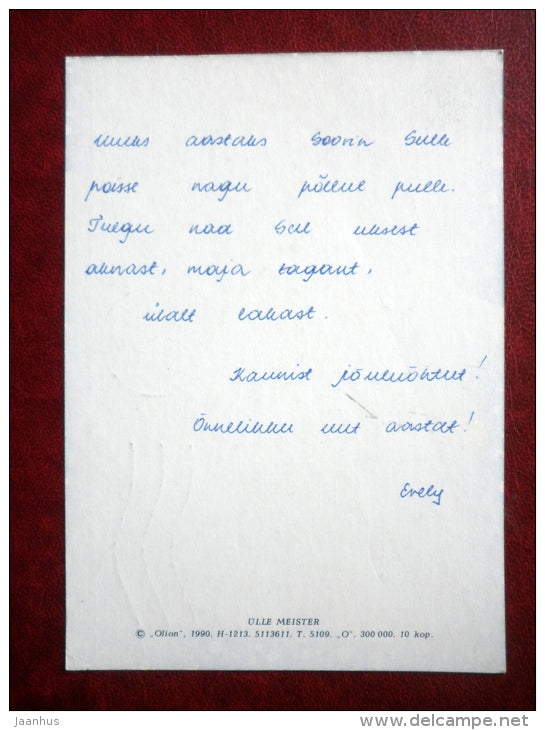 Uueks aastaks Soovin Sulle
poisse nagu põllul pulle.
Tulgu nad Sul uksest
aknast, maja tagant,
ülalt lakast.
Kaunist jõuluõhtut!
Õnnelikku uut aastat!
Evely
ÜLLE MEISTER
© „Olion", 1990. H-1213. 5113611. T. 5109. „O". 300 000. 10 kop.
jaanhus
www.delcampe.net